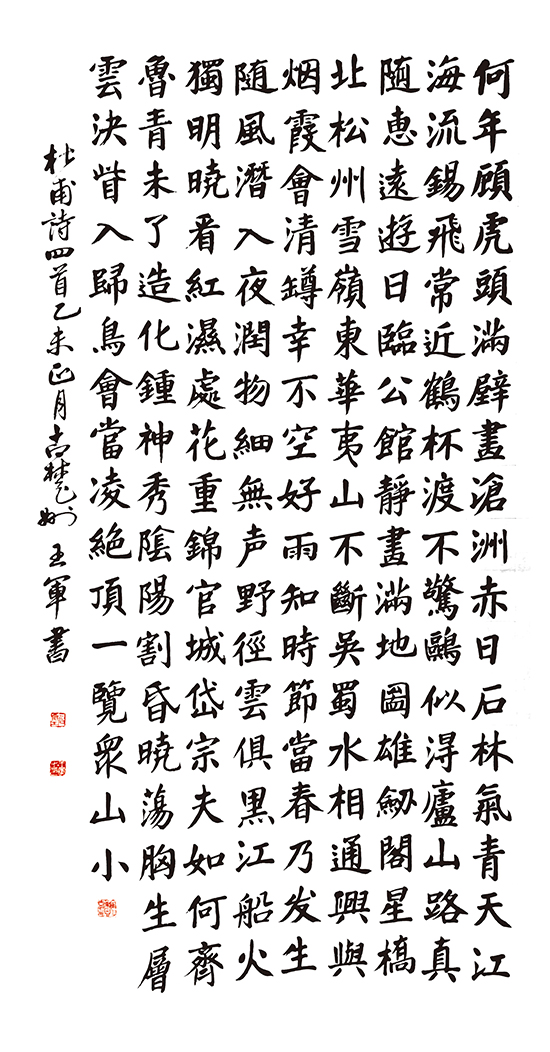 何年顧虎頭滿壁畫滄洲赤日石林氣青天江
海流錫飛常近鶴杯渡不驚鷗似淂廬山路真
随惠遠遊日臨公館靜畫滿地圖雄劒閣星橋
北松州雪嶺東華夷山不斷吳蜀水相通興與
烟霞會清罇幸不空好雨知時節當春乃发生
随風潛入夜潤物細無声野徑雲俱黑江船火
獨明曉看紅濕處花重錦官城岱宗夫如何齊
魯青未了造化鍾神秀陰陽割昏曉蕩胸生層
雲決眥入歸鳥會當凌絕頂一覽眾山小
杜甫詩四首乙未正月古楚州王軍書